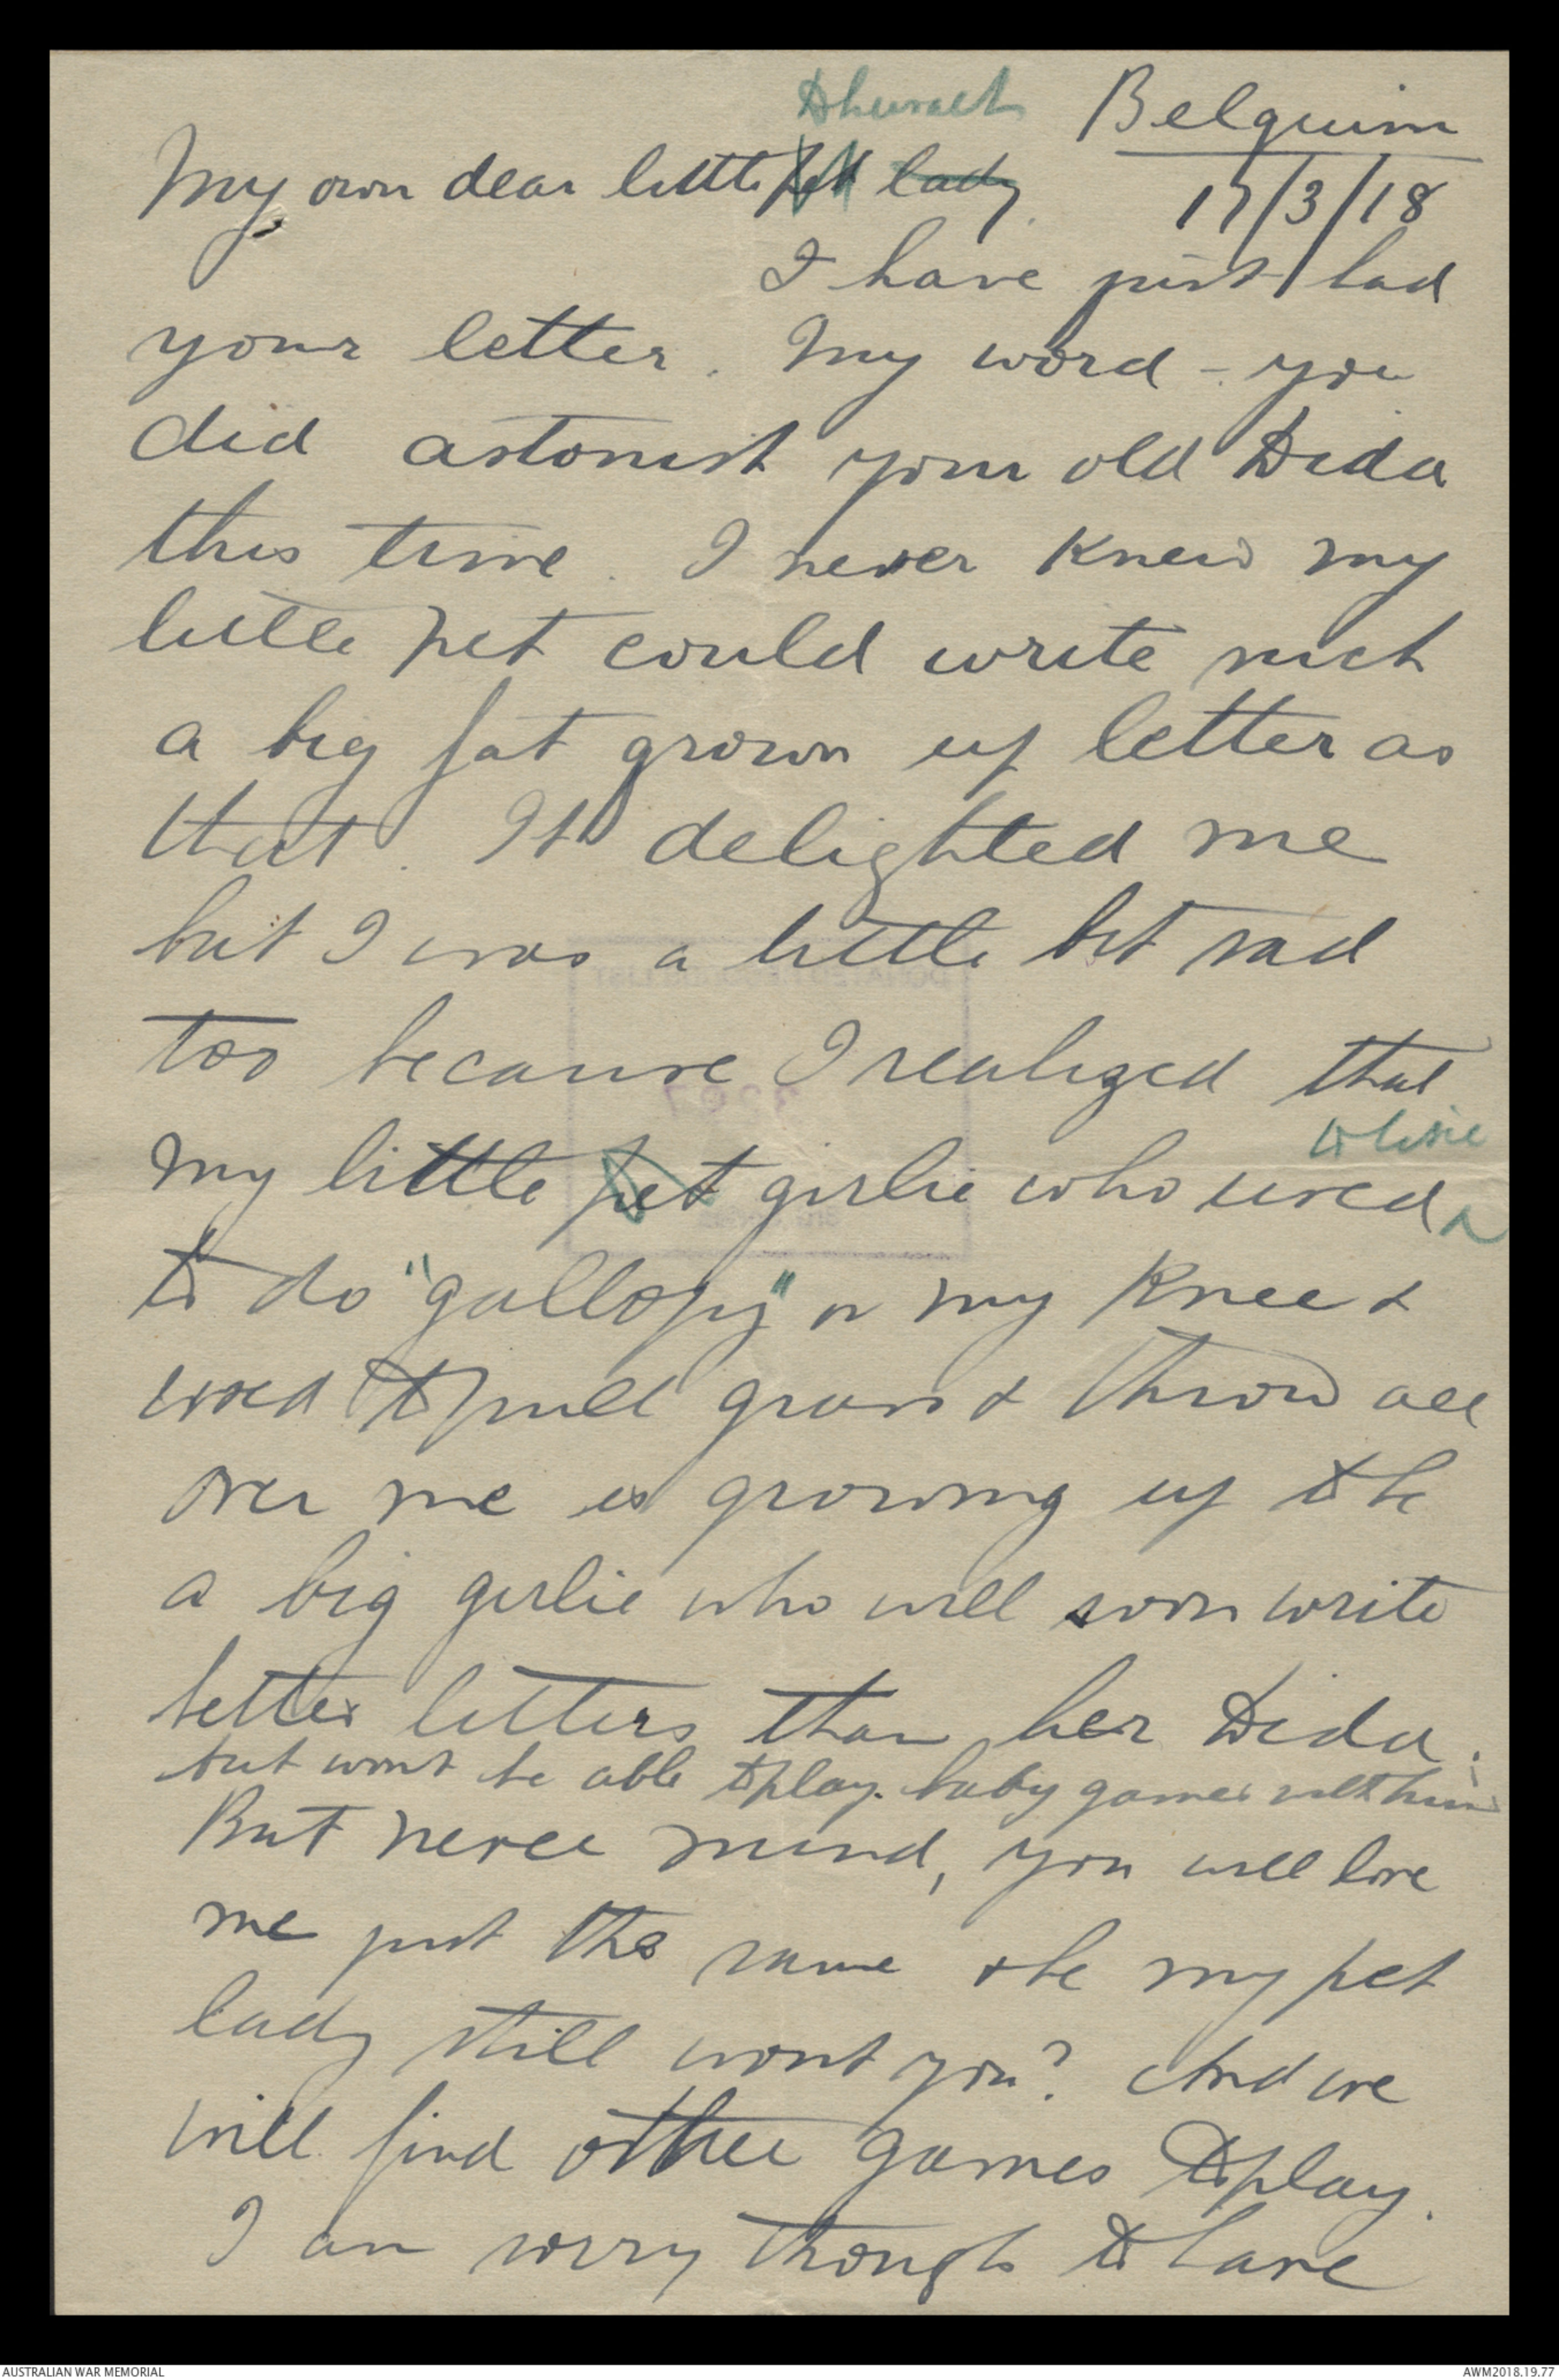 Belguim
My own dear little pet lady 17/3/18
I have just had
your letter. My word - you
did astonish your old Dida
this time. I never knew my
little pet could write such
a big fat grown up letter as
that. It delighted me
but I was a little bit sad
too because I realized that
my little pet girlie who used
to do "gallopy" on my knee &
used to pull grass & throw all
over me is growing up to be
a big girlie who will soon write
better letters than her Dida.
but wont be able to play baby games with him
But never mind, you will love
me just the same & be my pet
lady still wont you? And we
will find other games to play.
I am sorry though to have
AUSTRALIAN WAR MEMORIAL
AWM2018.19.77